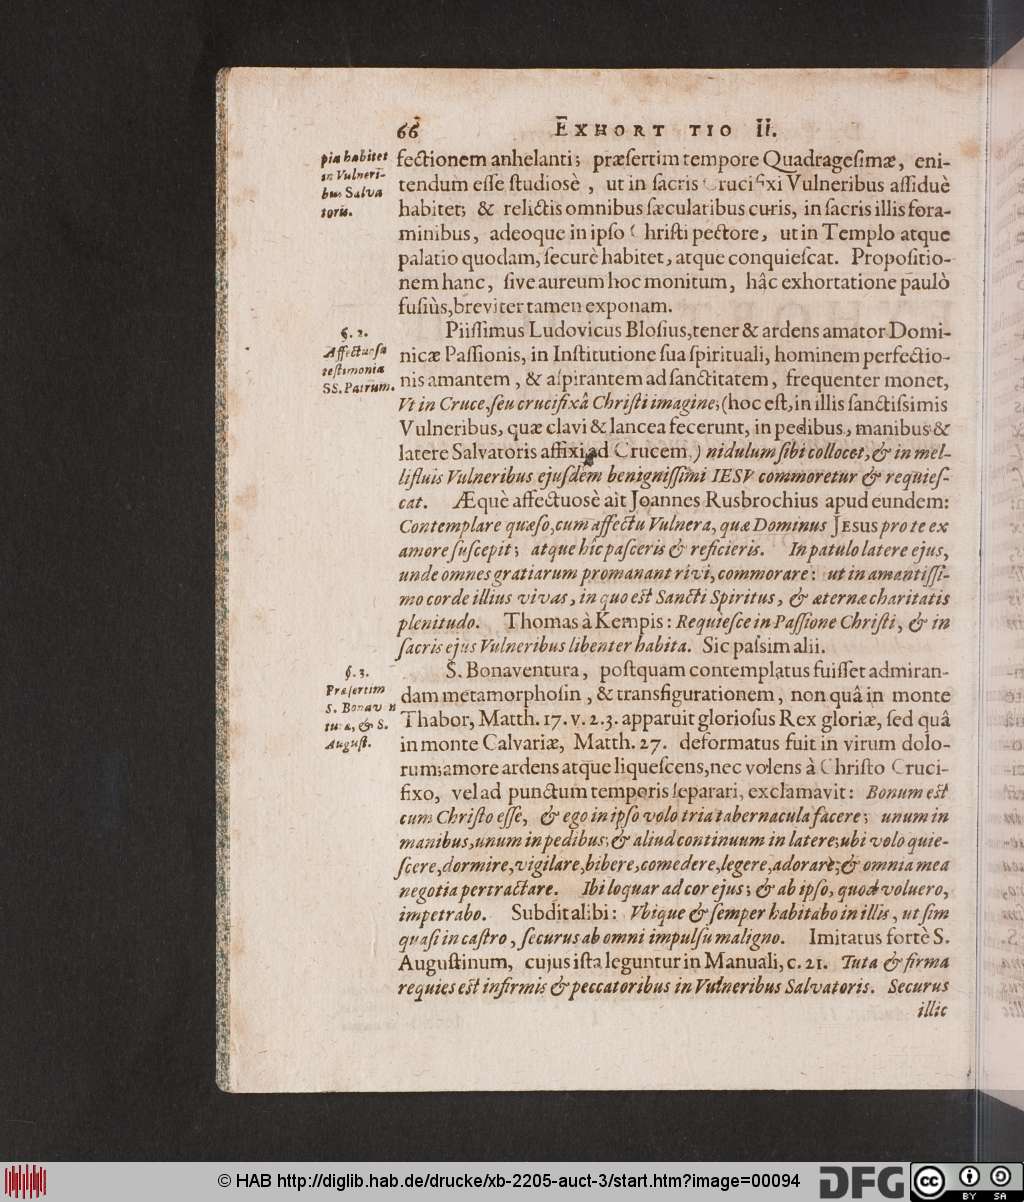 66 EXHORT TIO II.
pia habitet
in Vulneri-
bus Salva
toris.
fectionem anhelanti; præſertim tempore Quadrageſimæ, eni-
tendum eſſe ſtudiosè, ut in ſacris Crucifixi Vulneribus aſſiduè
habitet; & relictis omnibus ſæcularibus curis, in ſacris illis fora-
minibus, adeoque in ipſo Chriſti pectore, ut in Templo atque
palatio quodam, ſecurè habitet, atque conquieſcat. Propoſitio-
nem hanc, ſive aureum hoc monitum, hâc exhortatione paulò
fuſiùs, breviter tamen exponam.
§. 2.
Affectuoſa
teſtimonia
SS. Patrum.
Piiſſimus Ludovicus Bloſius, tener & ardens amator Domi-
nicæ Paſſionis, in Inſtitutione ſua ſpirituali, hominem perfectio-
nis amantem, & aſpirantem ad ſanctitatem, frequenter monet,
Vt in Cruce, ſeu crucifixâ Chriſti imagine; (hoc eſt, in illis ſanctiſsimis
Vulneribus, quæ clavi & lancea fecerunt, in pedibus, manibus &
latere Salvatoris affixi ad Crucem,) nidulum ſibi collocet, & in mel-
lifluis Vulneribus ejuſdem benigniſſimi IESV commoretur & requieſ-
cat. Æquè affectuosè ait Joannes Rusbrochius apud eundem:
Contemplare quæſo, cum affectu Vulnera, quæ Dominus JESUS pro te ex
amore ſuſcepit; atque hîc paſceris & reficieris. In patulo latere ejus,
unde omnes gratiarum promanant rivi, commorare: ut in amantiſſi-
mo corde illius vivas, in quo eſt Sancti Spiritus, & æternæ charitatis
plenitudo. Thomas à Kempis: Requieſce in Paſſione Chriſti, & in
ſacris ejus Vulneribus libenter habita. Sic paſsim alii.
§. 3.
Præſertim
S. Bonav n
turæ, & S.
Auguſt.
S. Bonaventura, poſtquam contemplatus fuiſſet admiran-
dam metamorphoſin, & transfigurationem, non quâ in monte
Thabor, Matth. 17. v. 2. 3. apparuit glorioſus Rex gloriæ, ſed quâ
in monte Calvariæ, Matth. 27. deformatus fuit in virum dolo-
rum; amore ardens atque liqueſcens, nec volens à Chriſto Cruci-
fixo, vel ad punctum temporis ſeparari, exclamavit: Bonum eſt
cum Chriſto eſſe, & ego in ipſo volo tria tabernacula facere; unum in
manibus, unum in pedibus; & aliud continuum in latere; ubi volo quie-
ſcere, dormire, vigilare, bibere, comedere, legere, adorare; & omnia mea
negotia pertractare. Ibi loquar ad cor ejus; & ab ipſo, quod voluero,
impetrabo. Subdit alibi: Vbique & ſemper habitabo in illis, ut ſim
quaſi in caſtro, ſecurus ab omni impulſu maligno. Imitatus fortè S.
Auguſtinum, cujus iſta leguntur in Manuali, c. 21. Tuta & firma
requies eſt infirmis & peccatoribus in Vulneribus Salvatoris. Securus
illic
© HAB http://diglib.hab.de/drucke/xb-2205-auct-3/start.htm?image=00094
DFG
cc BY SA